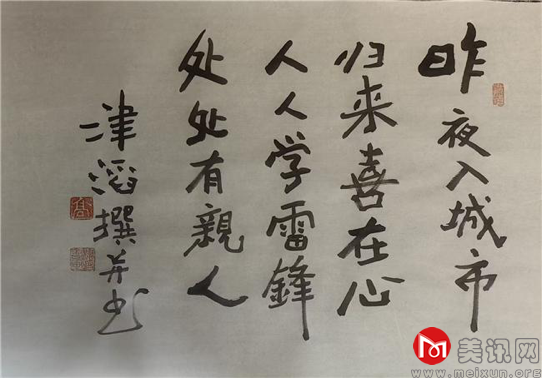 昨夜入城市
归来喜在心
人人学雷锋
处处有親人
津滔撰并书
美讯网
www.meixun.org